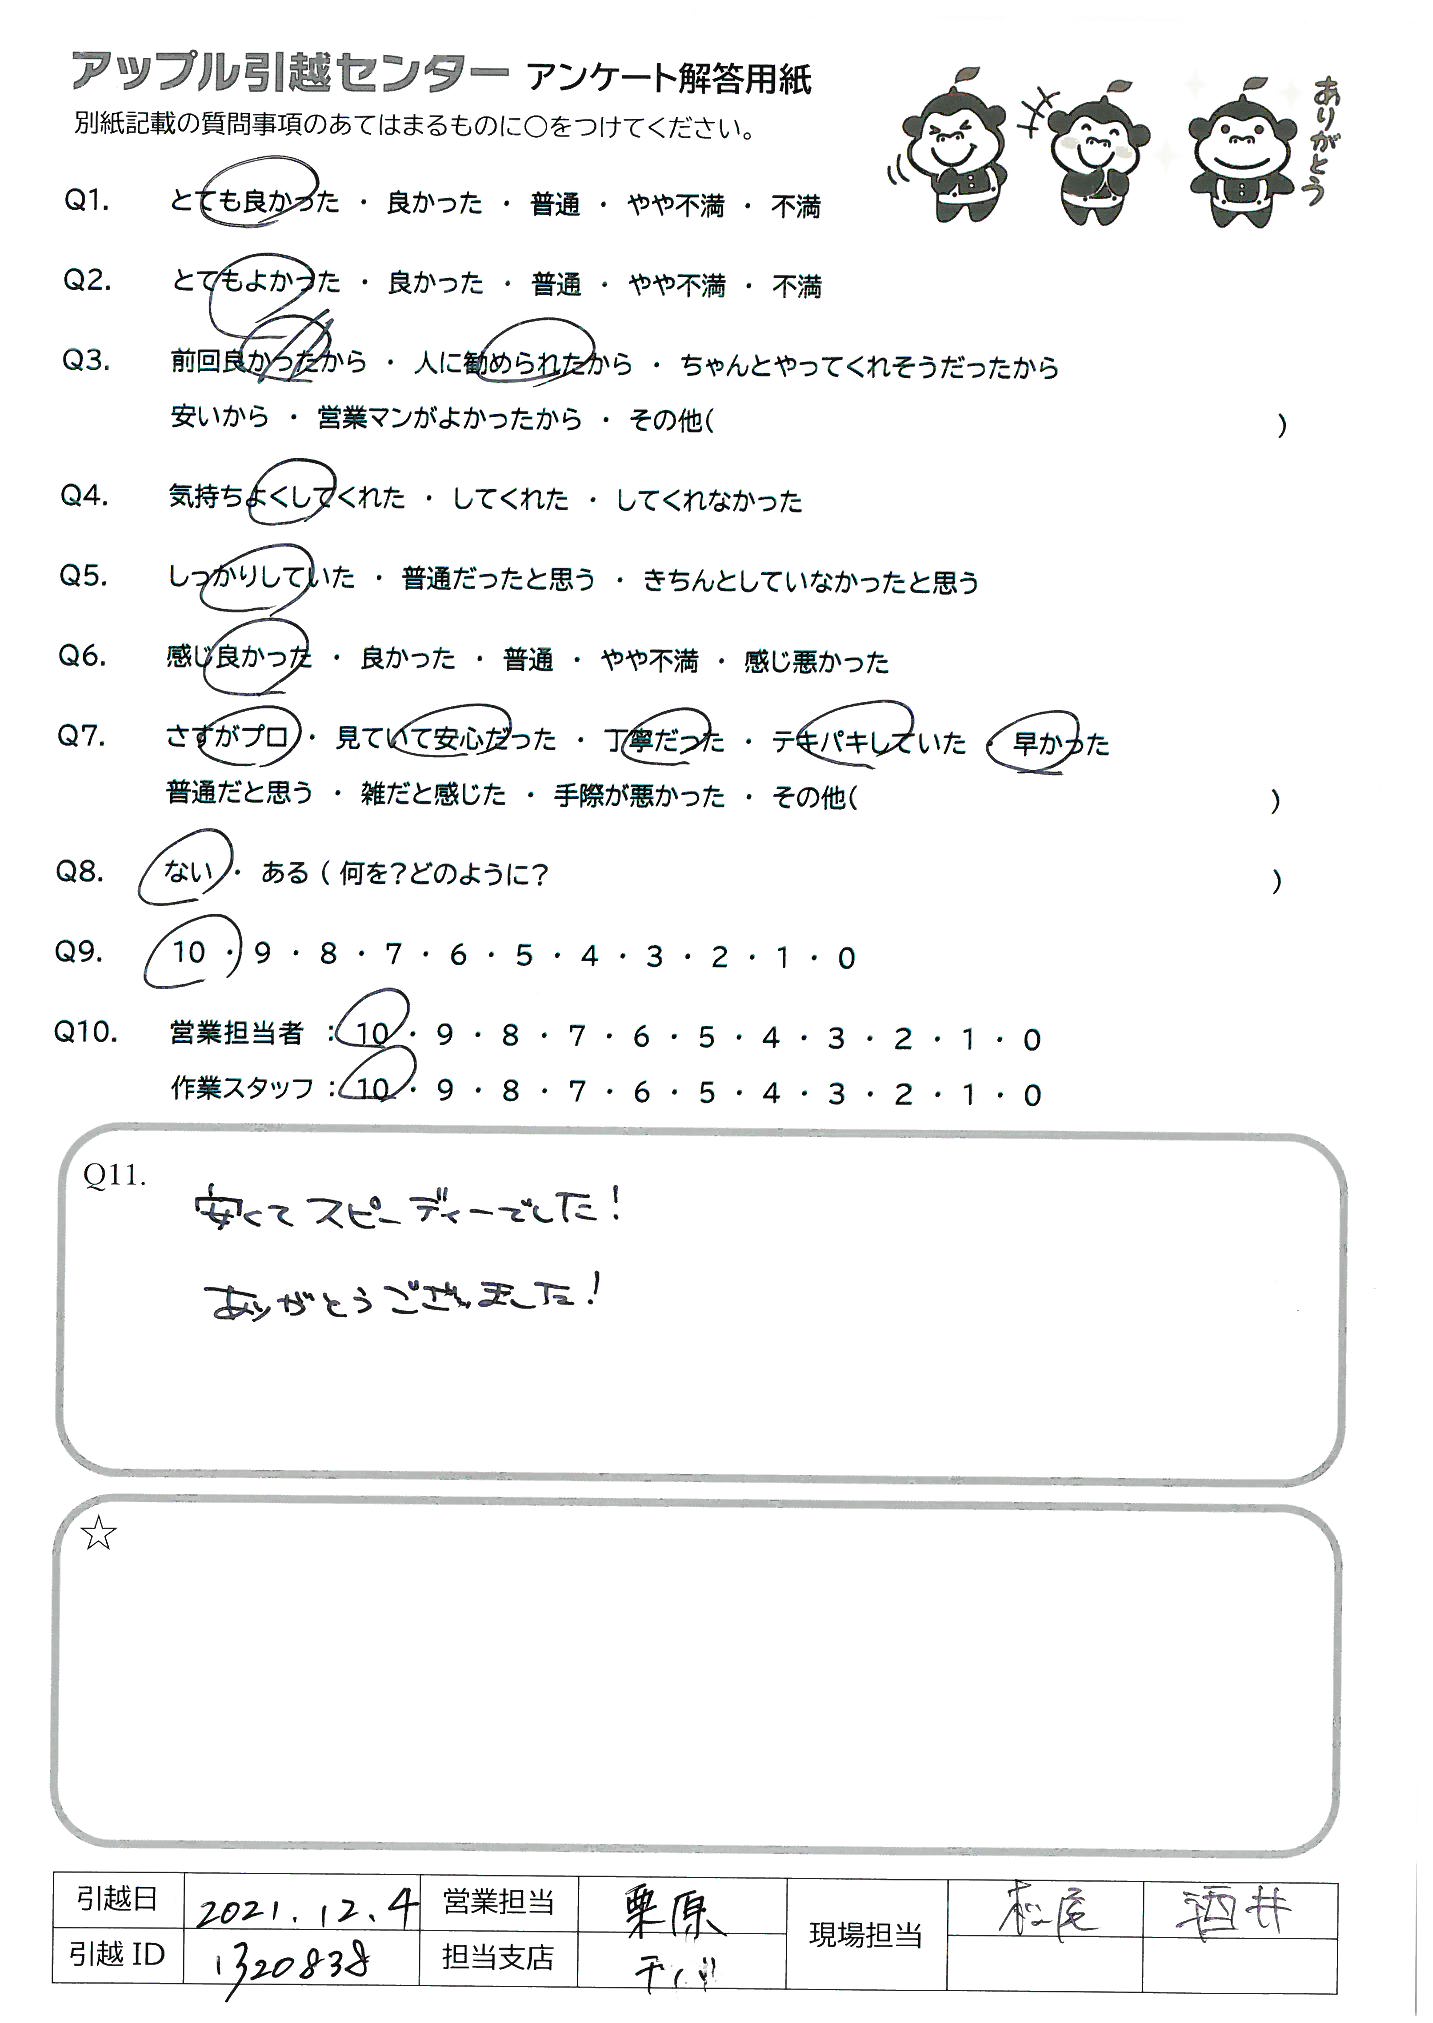 アップル引越センター アンケート解答用紙
別紙記載の質問事項のあてはまるものに○をつけてください。
ありがとう
Q1. とても良かった ・ 良かった ・ 普通 ・ やや不満 ・ 不満
Q2. とてもよかった ・ 良かった ・ 普通 ・ やや不満 ・ 不満
Q3. 前回良かったから ・ 人に勧められたから ・ ちゃんとやってくれそうだったから
安いから ・ 営業マンがよかったから ・ その他( )
Q4. 気持ちよくしてくれた ・ してくれた ・ してくれなかった
Q5. しっかりしていた ・ 普通だったと思う ・ きちんとしていなかったと思う
Q6. 感じ良かった ・ 良かった ・ 普通 ・ やや不満 ・ 感じ悪かった
Q7. さすがプロ ・ 見ていて安心だった ・ 丁寧だった ・ テキパキしていた ・ 早かった
普通だと思う ・ 雑だと感じた ・ 手際が悪かった ・ その他( )
Q8. ない ・ ある ( 何を?どのように? )
Q9. 10 ・ 9 ・ 8 ・ 7 ・ 6 ・ 5 ・ 4 ・ 3 ・ 2 ・ 1 ・ 0
Q10. 営業担当者 : 10 ・ 9 ・ 8 ・ 7 ・ 6 ・ 5 ・ 4 ・ 3 ・ 2 ・ 1 ・ 0
作業スタッフ : 10 ・ 9 ・ 8 ・ 7 ・ 6 ・ 5 ・ 4 ・ 3 ・ 2 ・ 1 ・ 0
Q11.
安くてスピーディーでした!
ありがとうございました!
☆
引越日 2021.12.4 営業担当 栗原 現場担当 松尾 酒井
引越 ID 1320838 担当支店 千ババ